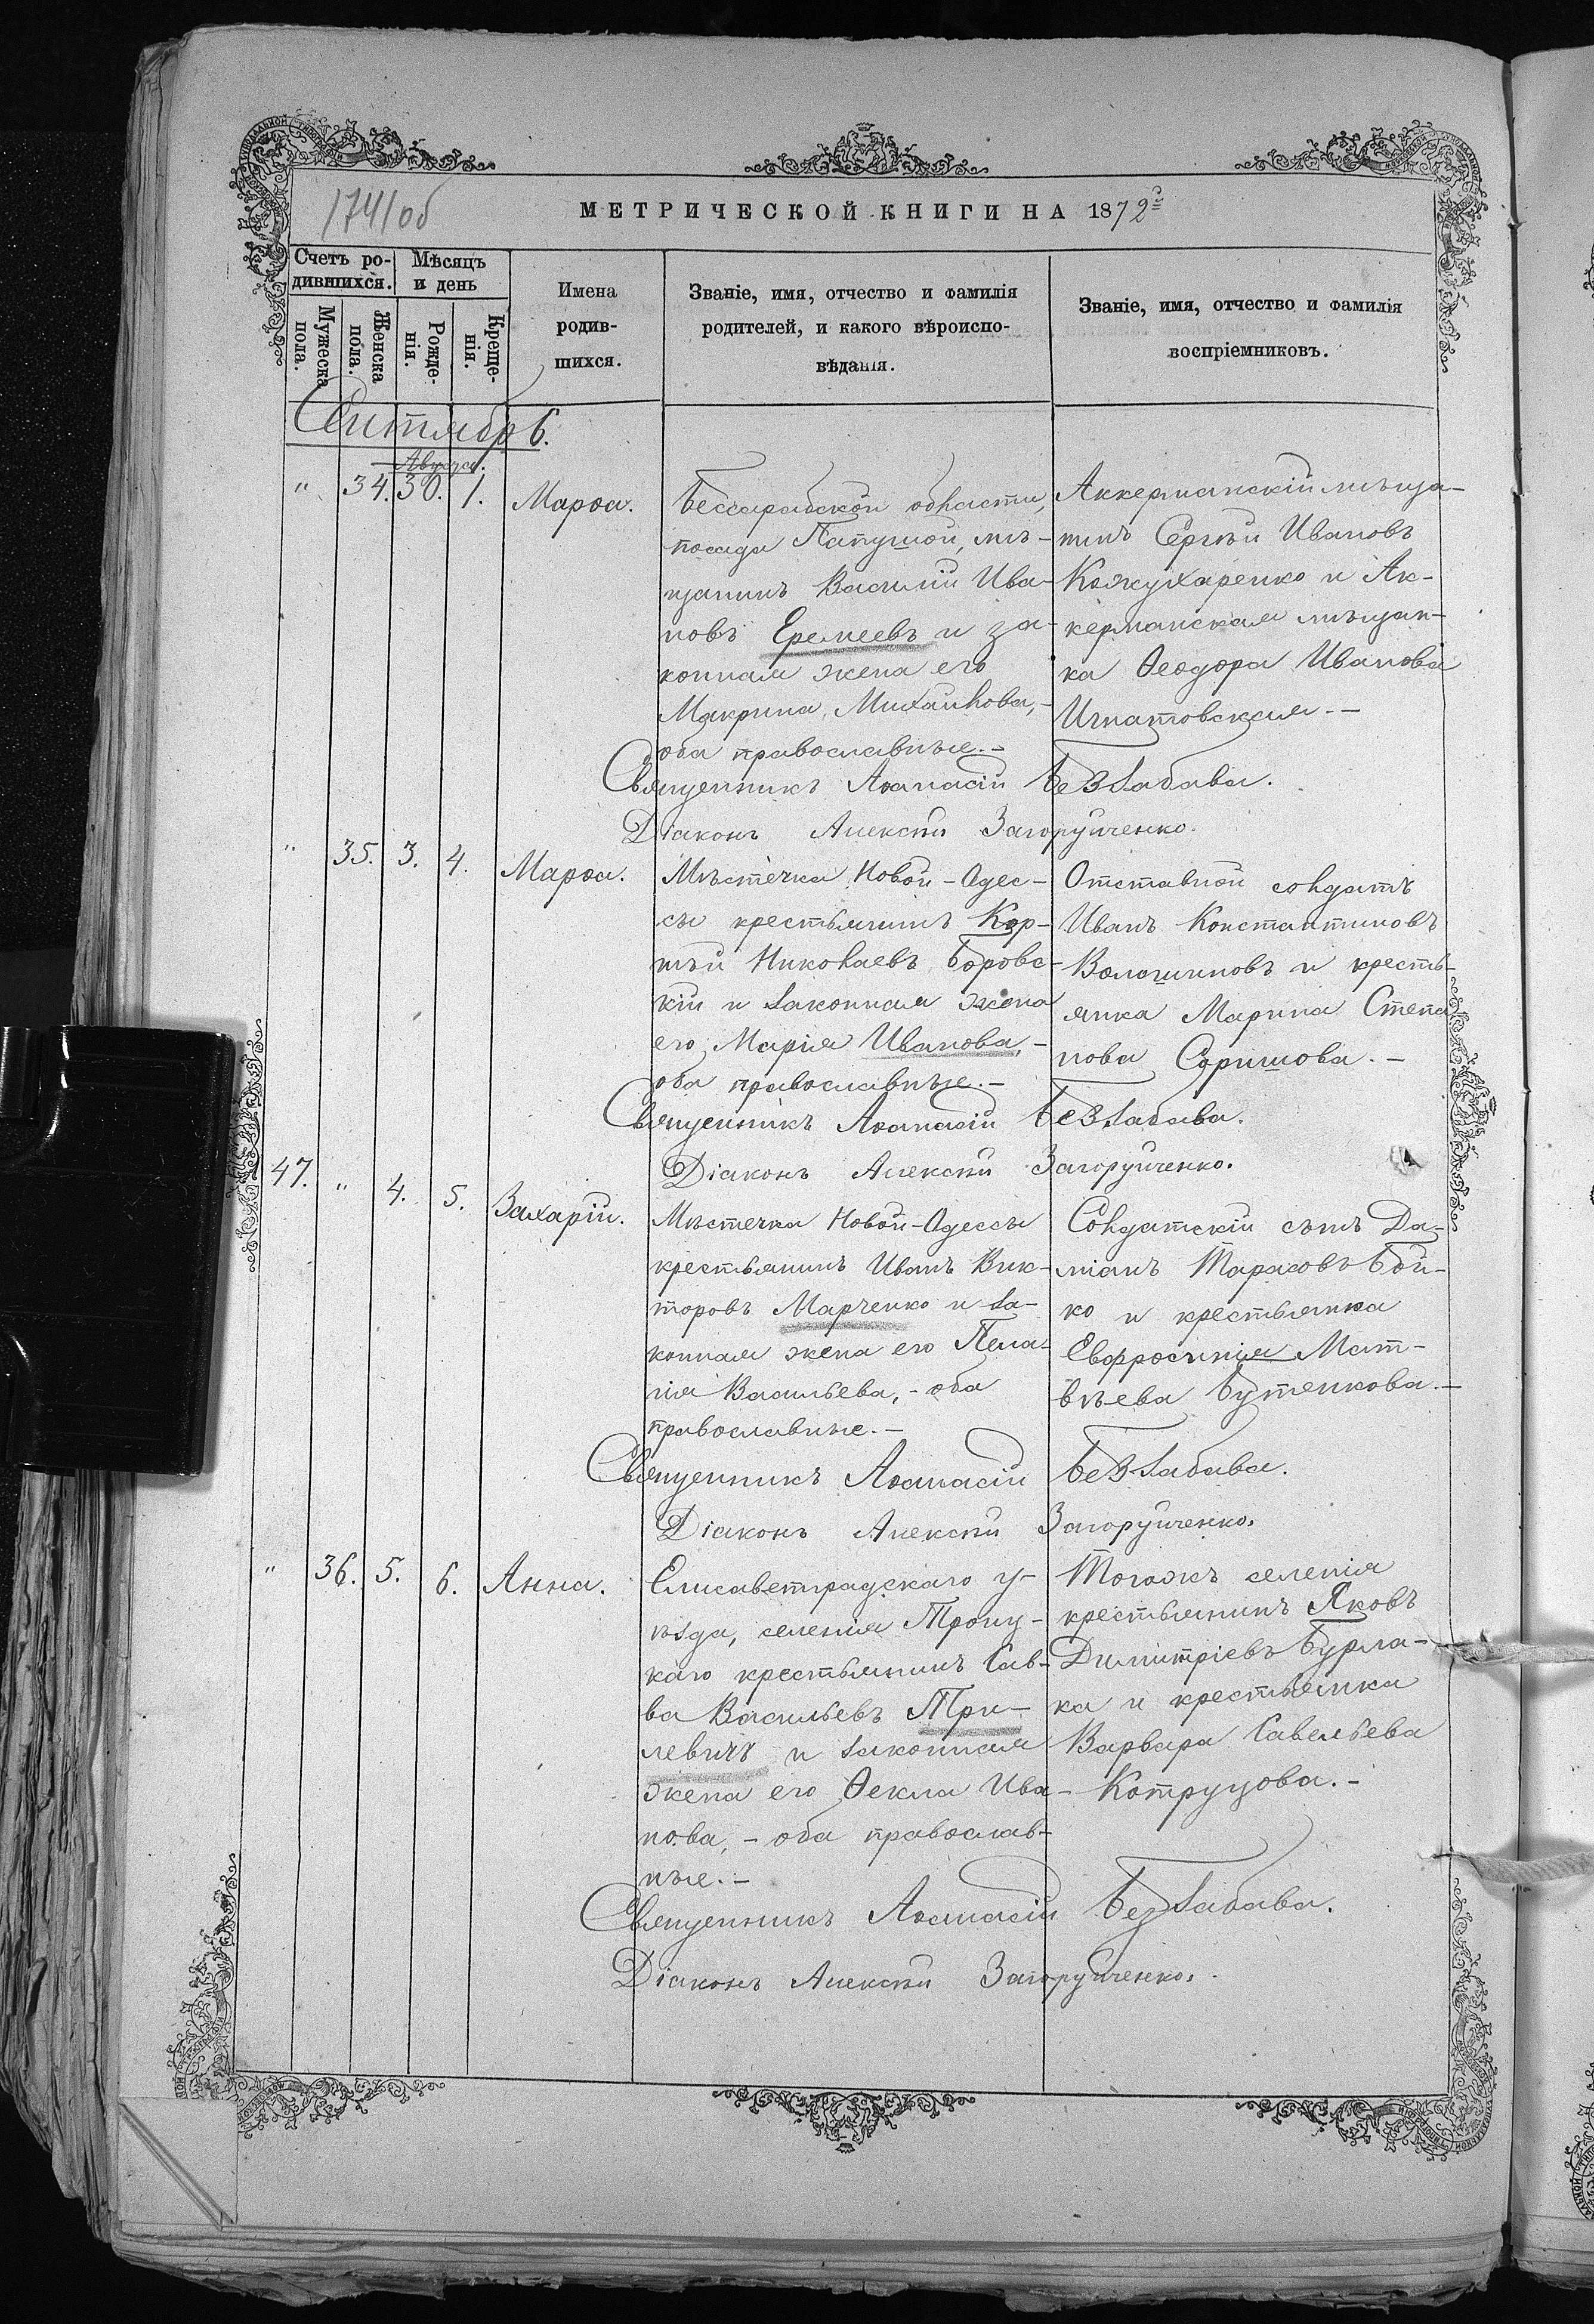 1741об
МЕТРИЧЕСКОЙ КНИГИ НА 1872й
Счетъ ро-
дившихся.
Мѣсяцъ
и день
Мужеска
пола.
Женска
пола.
Рожде-
нія.
Креще-
нія.
Имена
родив-
шихся.
Званіе, имя, отчество и фамилія
родителей, и какого вѣроиспо-
вѣданія.
Званіе, имя, отчество и фамилія
воспріемниковъ.
Сентябрь.
Августа.
" 34. 30. 1. Марѳа.
Бессарабской области,
посада Папушой, мѣ-
щанинъ Василій Ива-
новъ Еремеевъ и за-
конная жена его
Макрина Михайлова,-
оба православные.-
Аккерманскій мѣща-
нинъ Сергѣй Ивановъ
Кожухаренко и Ак-
керманская мѣщан-
ка Ѳеодора Иванова
Игнатовская.-
Священникъ Аѳанасій Беззабава.
Діаконъ Алексѣй Загоруйченко.
" 35. 3. 4. Марѳа.
Мѣстечка Новой-Одес-
сы крестьянинъ Кор-
нѣй Николаевъ Боровс-
кій и законная жена
его Марія Иванова,-
оба православные.-
Отставной солдатъ
Иванъ Константиновъ
Волошиновъ и кресть-
янка Марина Степа
нова Соришова.-
Священникъ Аѳанасій Беззабава.
Діаконъ Алексѣй Загоруйченко.
47. " 4. 5. Захарій.
Мѣстечка Новой-Одессы
крестьянинъ Иванъ Вик-
торовъ Марченко и за-
конная жена его Пела-
гія Васильева,- оба
православные.-
Солдатскій сынъ Да-
міанъ Тарасовъ Бой-
ко и крестьянка
Евфросинія Мат-
вѣева Бутенкова.-
Священникъ Аѳанасій Беззабава.
Діаконъ Алексѣй Загоруйченко.
" 36. 5. 6. Анна.
Елисаветградскаго у-
ѣзда, селенія Троиц-
каго крестьянинъ Сав-
ва Васильевъ Три-
левичъ и законная
жена его Ѳекла Ива-
нова,- оба православ-
ные.-
Тогожъ селенія
крестьянинъ Яковъ
Димитріевъ Бурла-
ка и крестьянка
Варвара Савельева
Котруцова.-
Священникъ Аѳанасій Беззабава.
Діаконъ Алексѣй Загоруйченко.